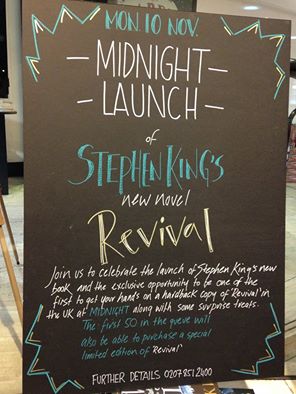 MON. 10 NOV.
MIDNIGHT
LAUNCH
of
STEPHEN KING'S
new novel
Revival
Join us to celebrate the launch of Stephen King's new
book and the exclusive opportunity to be one of the
first to get your hands on a hardback copy of 'Revival' in
the UK at MIDNIGHT along with some surprise treats.
The first 50 in the queue will
also be able to purchase a special
limited edition of 'Revival'
FURTHER DETAILS 0207 851 2400